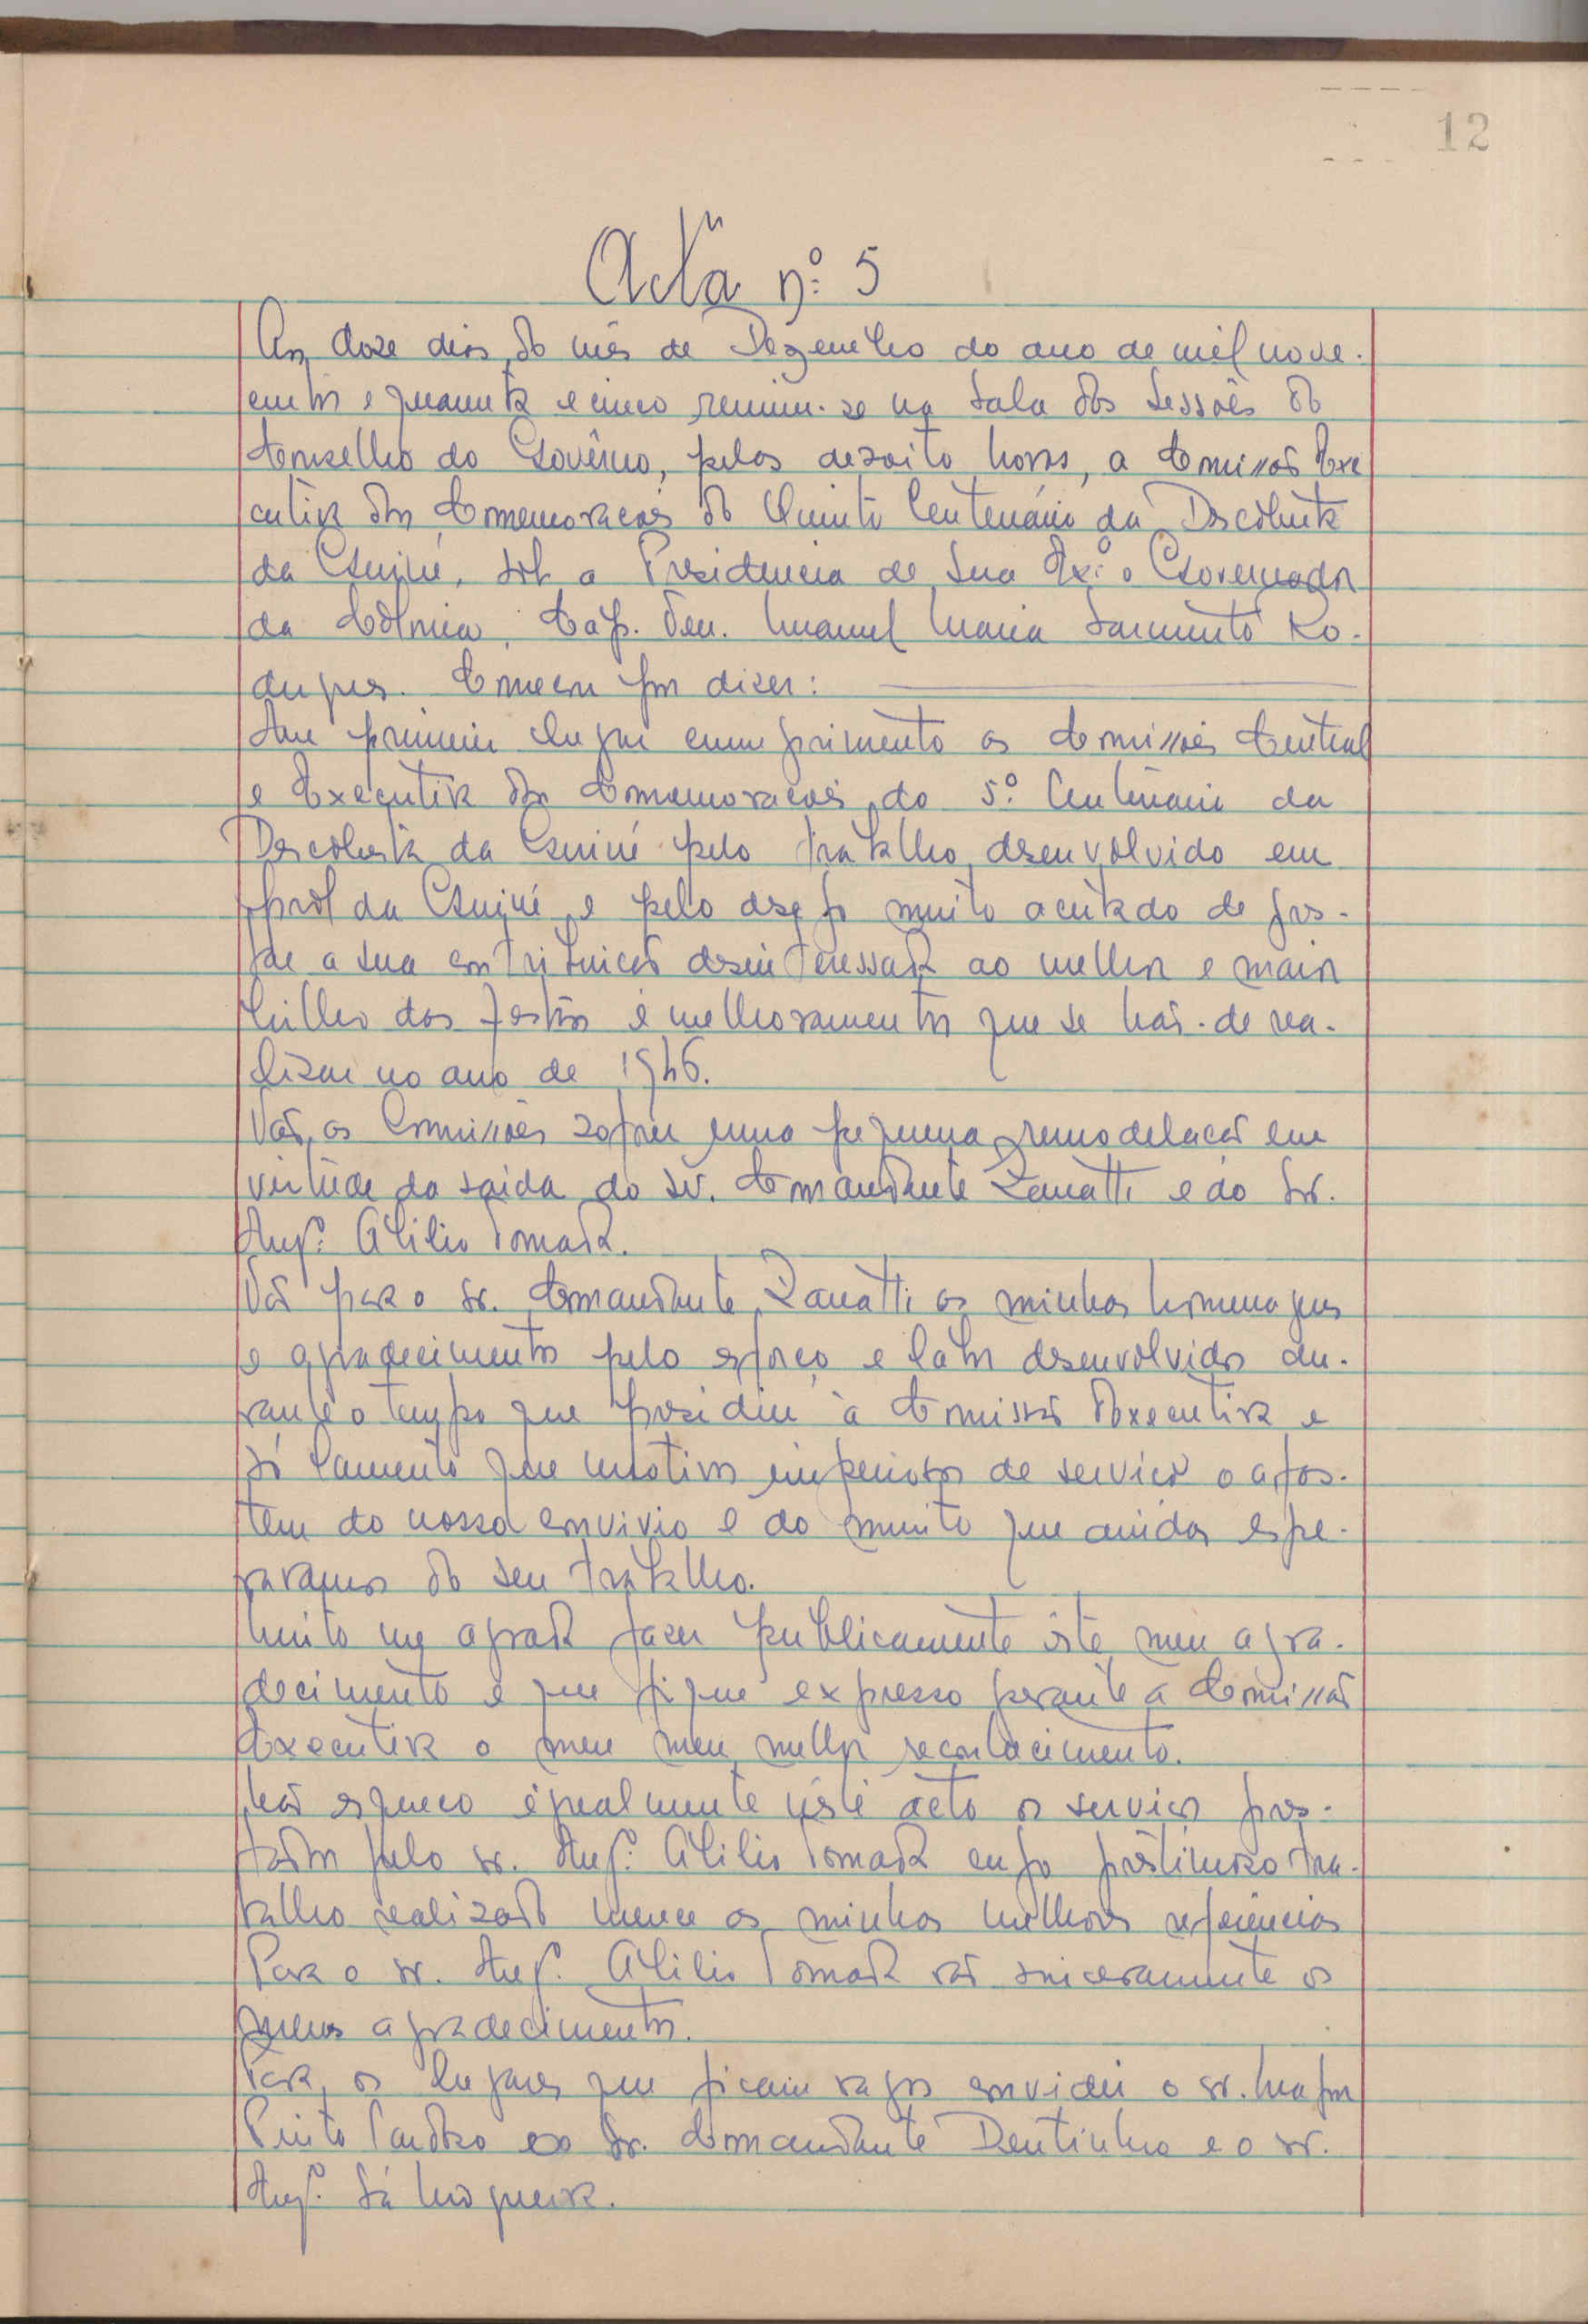 12
Acta n.º 5
Aos doze dias do mês de Dezembro do ano de mil nove-
centos e quarenta e cinco reuniu-se na Sala das Sessões do
Conselho do Govêrno, pelas dezoito horas, a Comissão Exe
cutiva das Comemorações do Quinto Centenário da Descoberta
da Guiné, sob a Presidencia de Sua Ex.º o Governador
da Colonia, Cap. Ten. Manuel Maria Sarmento Ro-
drigues. Começou por dizer:
Em primeiro lugar cumprimento as Comissões Central
e Executiva das Comemorações do 5.º Centenário da
Descoberta da Guiné pelo trabalho desenvolvido em
prol da Guiné e pelo desejo muito acentuado de pres-
tar a sua contribuição desinteressada ao melhor e maior
brilho das festas e melhoramentos que se hão-de rea-
lizar no ano de 1946.
Vão as Comissões sofrer uma pequena remodelação em
virtude da saída do Sr. Comandante Zanatti e do Sr.
Eng.º Atilio Tomada.
Vão para o Sr. Comandante Zanatti as minhas homenagens
e agradecimentos pelo esforço e labor desenvolvidos du-
rante o tempo que presidiu à Comissão Executiva e
só lamento que motivos imperiosos de serviço o afas-
tem do nosso convivio e do muito que ainda espe-
ravamos do seu trabalho.
Muito me agrada fazer publicamente êste meu agra-
decimento e que fique expresso perante a Comissão
Executiva o meu meu melhor reconhecimento.
Não esqueço igualmente nêste acto os serviços pres-
tados pelo sr. Eng.º Atilio Tomada cujo prestimoso tra-
balho realizado merece as minhas melhores referências
Para o sr. Eng.º Atilio Tomada vão sinceramente os
meus agradecimentos.
Para os lugares que ficam vagos convidei o sr. Major
Pinto Cardoso e o Sr. Comandante Dentinho e o sr.
Eng.º Sá Nogueira.